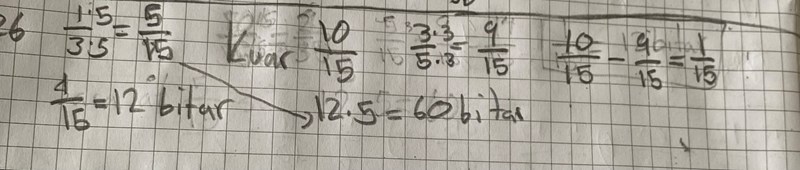 26 1·5/3·5 = 5/15 Kvar 10/15 3·3/5·3 = 9/15 10/15 - 9/15 = 1/15
1/15 = 12 bitar → 12·5 = 60 bitar